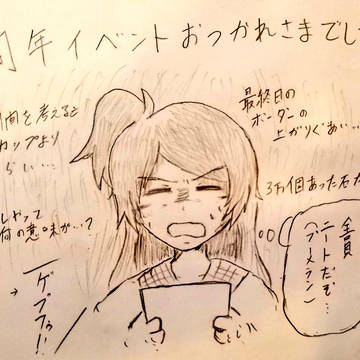 周年イベントおつかれさまでし
間を考えると
カップより
らい…
最終日の
ボーダーの
上がりぐあい…
3万個あった石が
しやって
何の意味が…?
全員
ニートだぞ…
(ブーメラン)